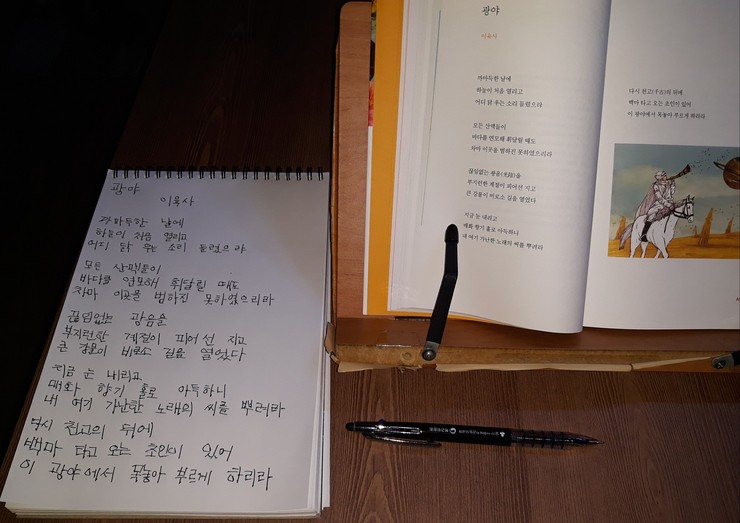 광야
이육사
까마득한 날에
하늘이 처음 열리고
어디 닭 우는 소리 들렸으랴
모든 산맥들이
바다를 연모해 휘달릴 때도
차마 이곳을 범하진 못하였으리라
끊임없는 광음을
부지런한 계절이 피어선 지고
큰 강물이 비로소 길을 열었다
지금 눈 내리고
매화 향기 홀로 아득하니
내 여기 가난한 노래의 씨를 뿌려라
다시 천고의 뒤에
백마 타고 오는 초인이 있어
이 광야에서 목놓아 부르게 하리라
광야
이육사
까마득한 날에
하늘이 처음 열리고
어디 닭 우는 소리 들렸으랴
모든 산맥들이
바다를 연모해 휘달릴 때도
차마 이곳을 범하진 못하였으리라
끊임없는 광음(光陰)을
부지런한 계절이 피어선 지고
큰 강물이 비로소 길을 열었다
지금 눈 내리고
매화 향기 홀로 아득하니
내 여기 가난한 노래의 씨를 뿌려라
다시 천고(千古)의 뒤에
백마 타고 오는 초인이 있어
이 광야에서 목놓아 부르게 하리라